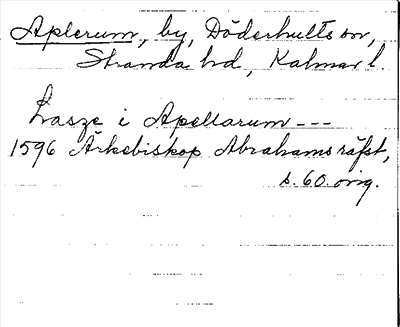 Aplerum, by, Döderhults sn,
Stranda hd, Kalmar l.
Lasze i Apellarum ---
1596 Ärkebiskop Abrahams räfst,
s. 60. orig.